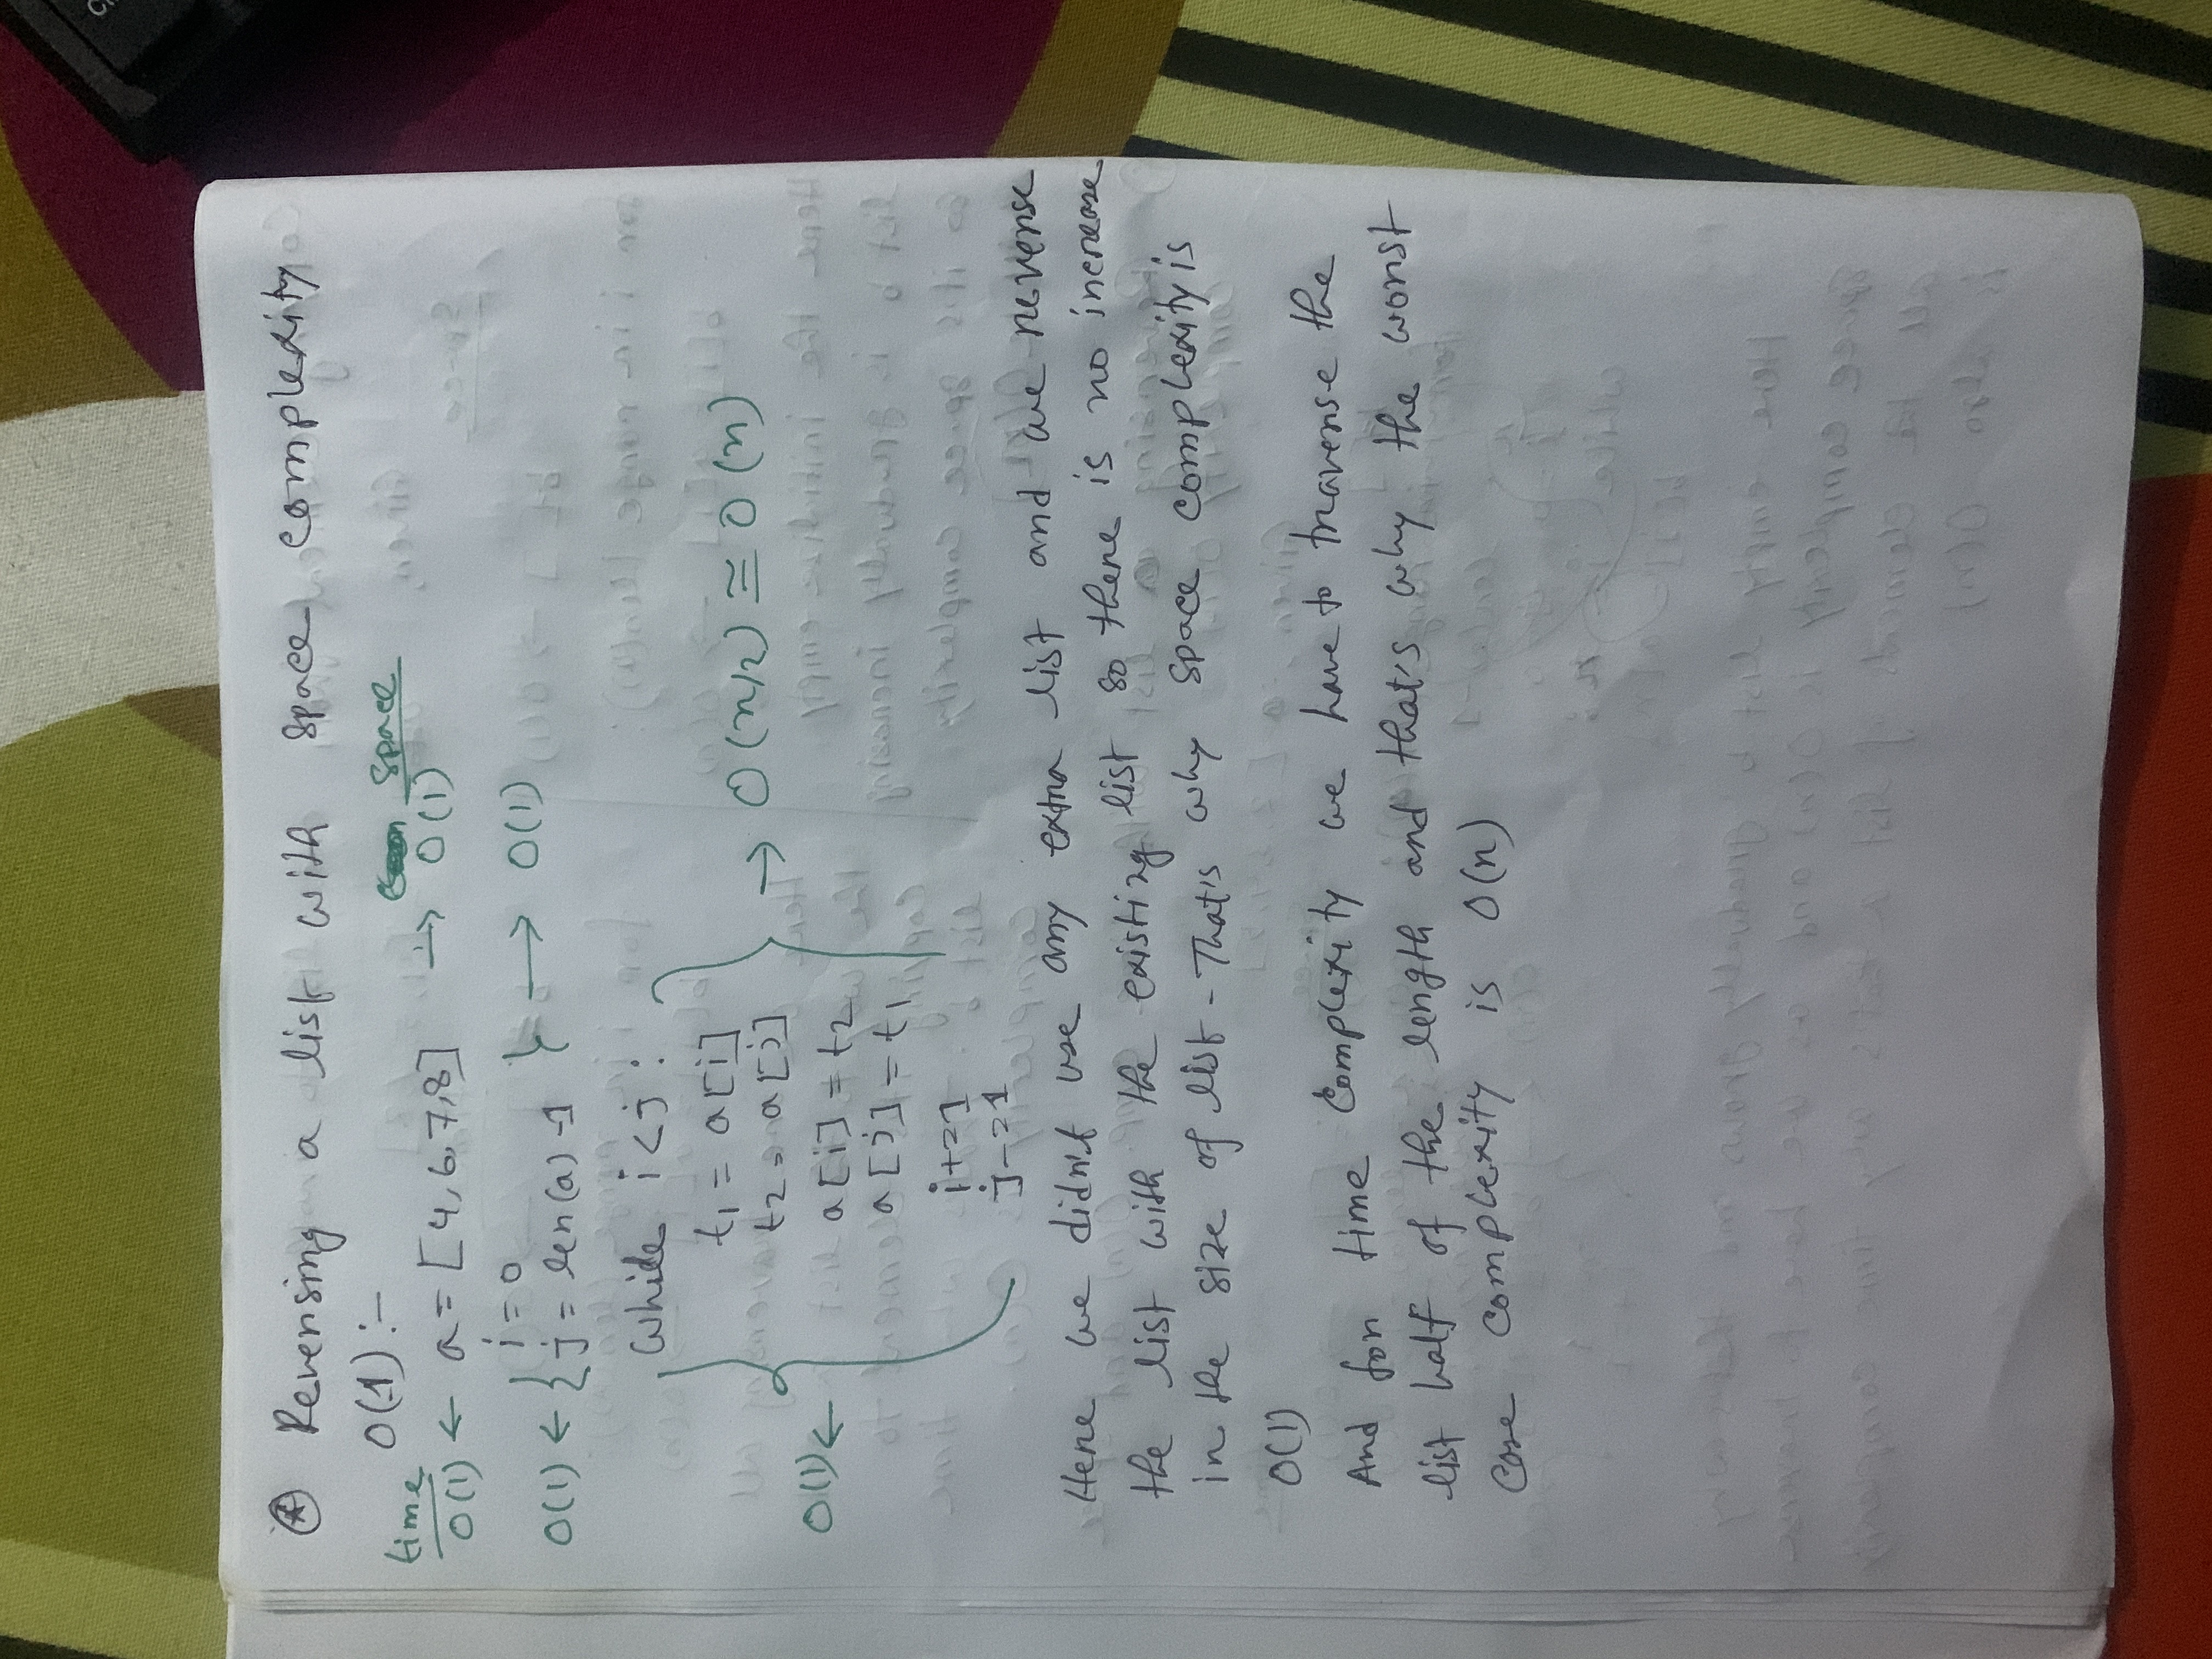 ⊛ Reversing a list with space complexity
O(1) :-
time space
O(1) ← a = [4, 6, 7, 8] → O(1)
i = 0
O(1) ← { j = len(a) -1 } → O(1)
While i < j :
t1 = a[i]
t2 = a[j] → O(n/2) ≅ O(n)
O(1) ← a[i] = t2
a[j] = t1
i+=1
j-=1
Here we didn't use any extra list and we reverse
the list with the existing list so there is no increase
in the size of list - That's why space complexity is
O(1)
And for time complexity we have to traverse the
list half of the length and that's why the worst
case complexity is O(n)